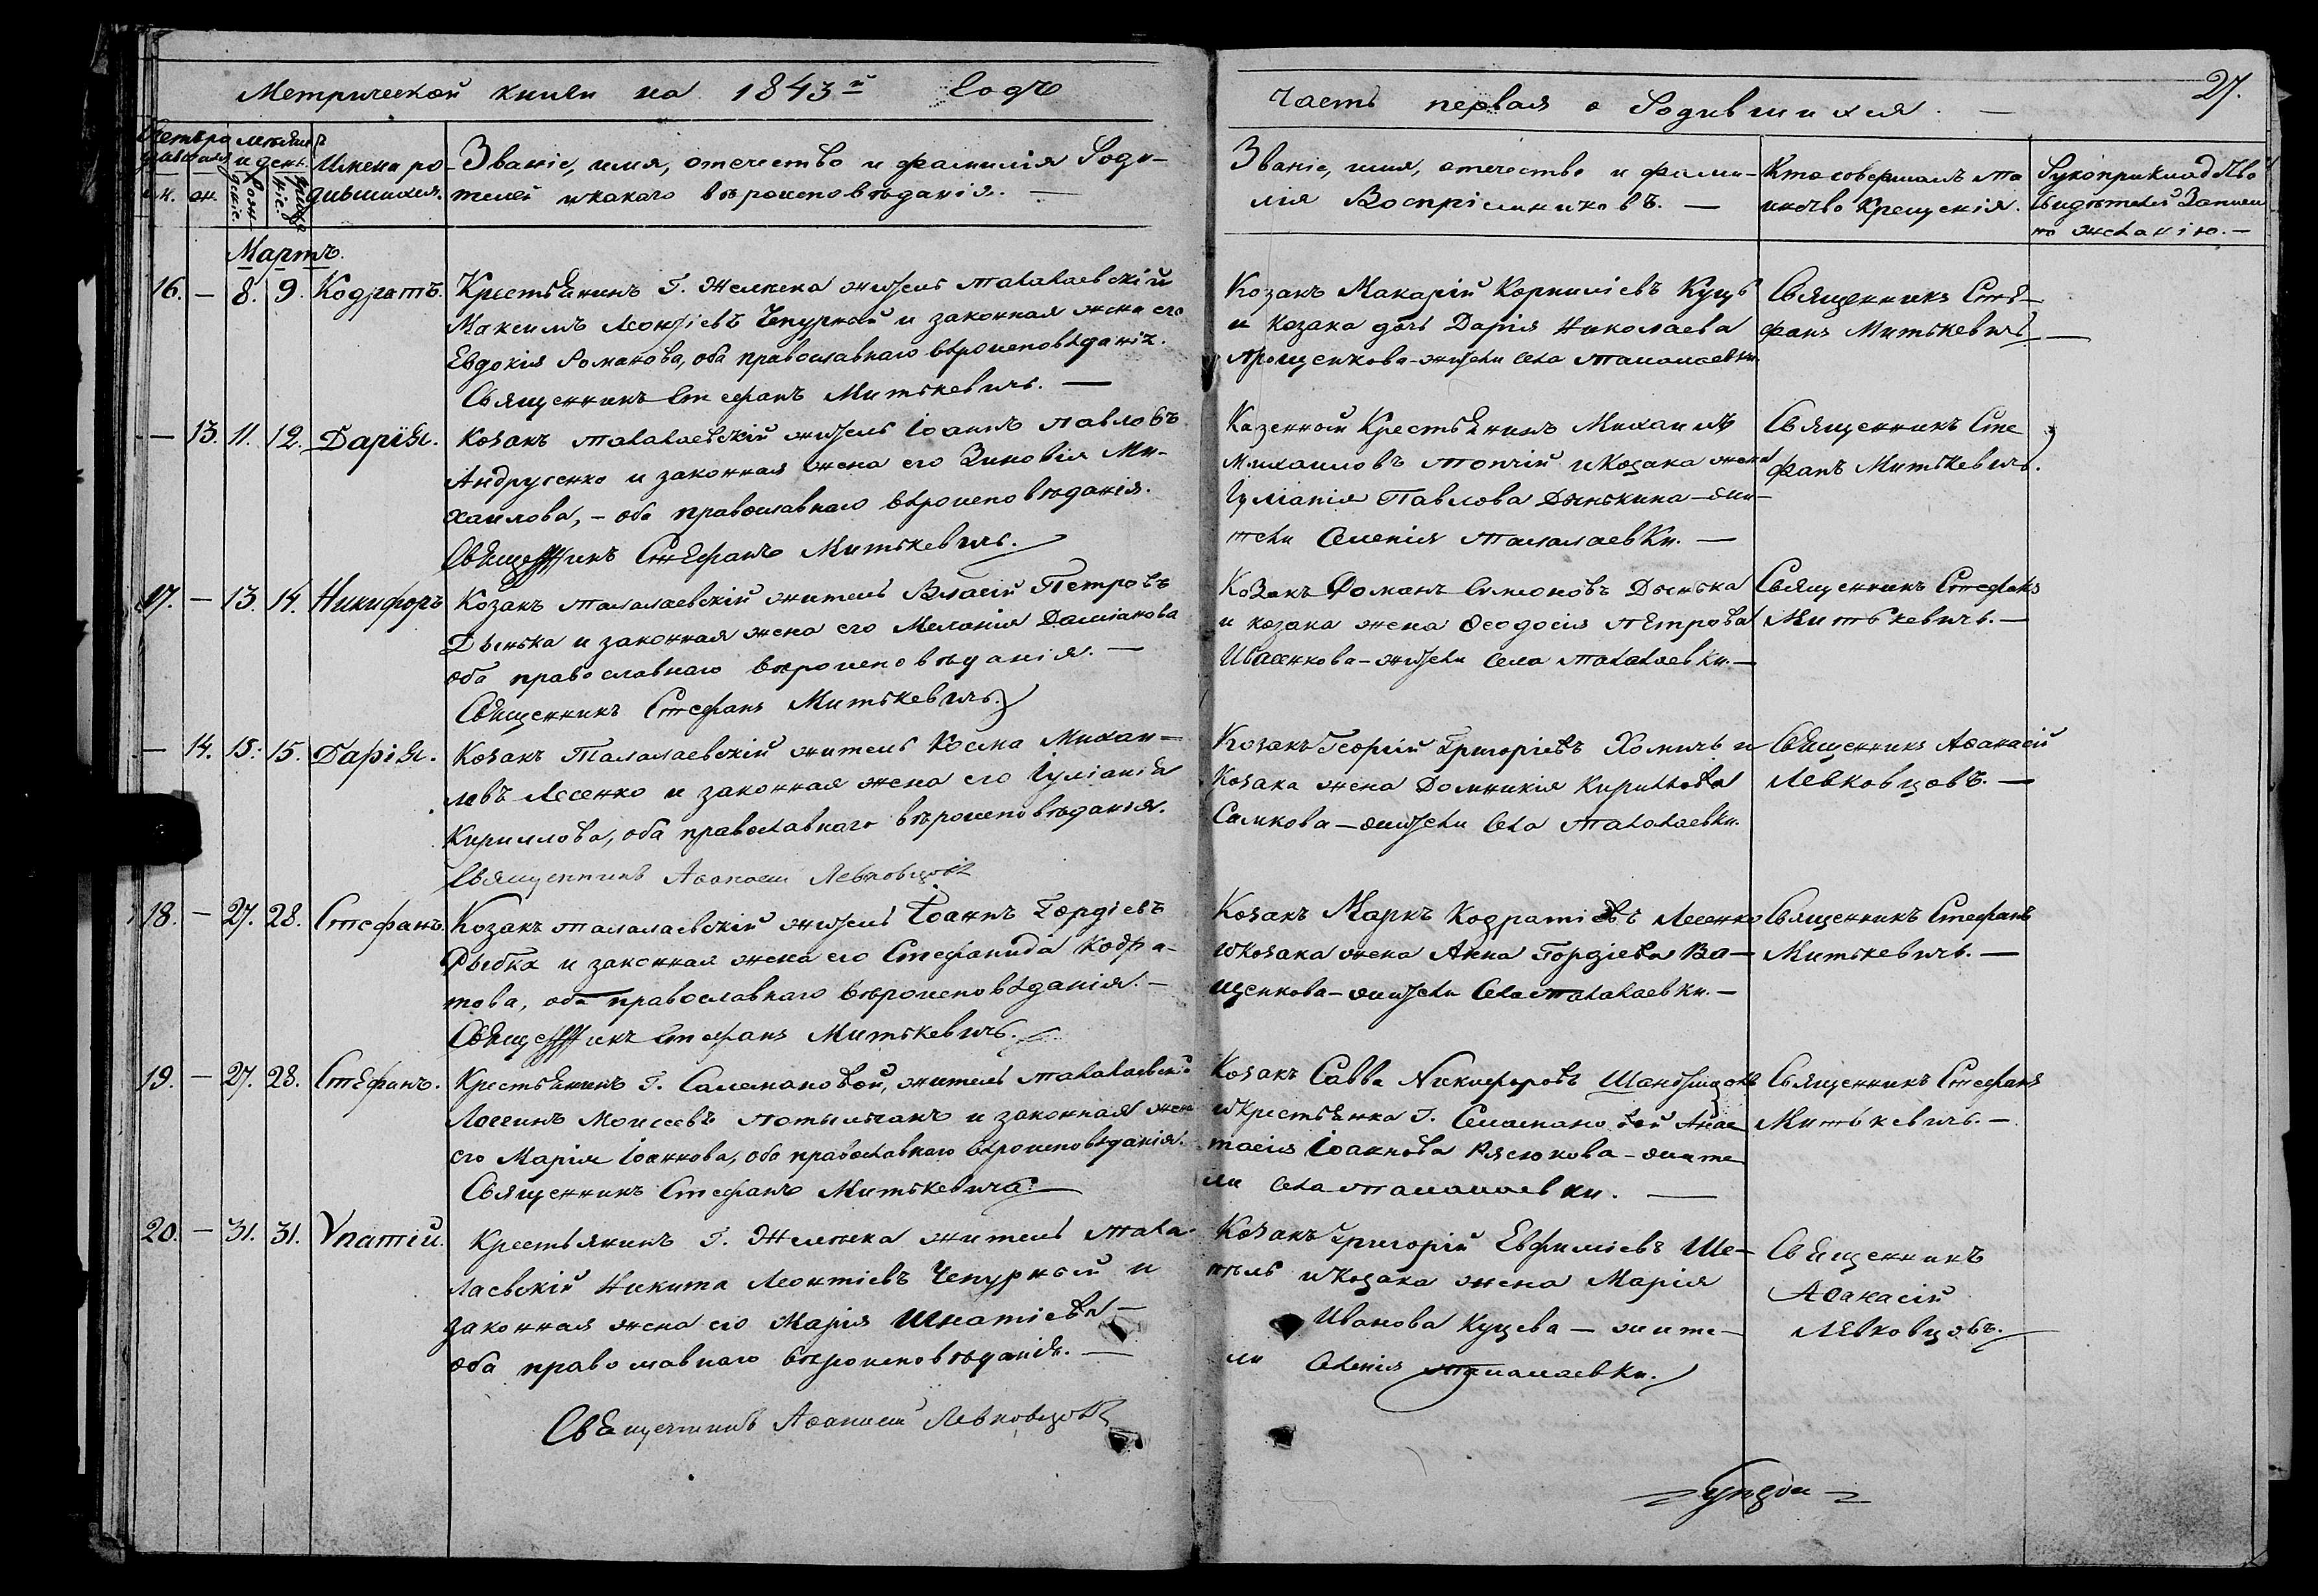 Метрической книги на 1843й годъ
Имена ро
дившихся.
Званіе, имя, отечество и фамилія Роди-
телей и какого вѣроисповѣданія. —
Мартъ.
16. — 8. 9. Кодратъ. Крестьянинъ Г. Жемчека житель талалаевскій
Максимъ Леонтіевъ Чепурной и законная жена его
Евдокія Романова, оба православнаго вѣроисповѣданія.
Священникъ Стефанъ Митькевичъ. —
— 13. 11. 12. Дарія. Козакъ талалаевскій житель Іоаннъ павловъ
Андрусенко и законная жена его Зиновія Ми-
хаилова, – оба православнаго вѣроисповѣданія.
Священникъ Стефанъ Митькевичъ.
17. — 13. 14. Никифоръ Козакъ талалаевскій житель Власій Петровъ
Дынька и законная жена его Меланія Даміанова
оба православнаго вѣроисповѣданія. —
Священникъ Стефанъ Митькевичъ.
— 14. 15. 15. Дарія. Козакъ Талалаевскій житель Косма Михаи-
ловъ Лесенко и законная жена его Іуліанія
Кириллова, оба православнаго вѣроисповѣданія.
Священникъ Аѳанасій Левковцовъ
18. — 27. 28. Стефанъ. Козакъ талалаевскій житель Іоаннъ Гордіевъ
Рыбка и законная жена его Стефанида Кодра-
това, оба православнаго вѣроисповѣданія. —
Священникъ Стефанъ Митькевичъ.
19. — 27. 28. Стефанъ. Крестьянинъ Г. Саломановой, житель талалаевскій
Логинъ Моисеевъ и законная жена
его Марія Іоаннова, оба православнаго вѣроисповѣданія.
Священникъ Стефанъ Митькевичъ.
20. — 31. 31. Упатій. Крестьянинъ Г. Жемчека житель тала-
лаевскій Никита Леонтіевъ Чепурный и
законная жена его Марія Игнатіева —
оба православнаго вѣроисповѣданія. —
Священникъ Аѳанасій Левковцовъ
27.
часть первая о Родившихся. —
Званіе, имя, отечество и фами-
лія Воспріемниковъ. —
Кто совершалъ та
инство Крещенія.
Рукоприкладство
свидѣтелей Записи
по желанію. —
Козакъ Макарій Корниліевъ Куць
и козака дочь Дарія Николаева
Прощенкова – жители села талалаевки
Священникъ Сте-
фанъ Митькевичъ —
Казенной Крестьянинъ Михаилъ
Михаиловъ и Козака жена
Іуліанія Павлова Дынькина – жи-
тели Селенія талалаевки. —
Священникъ Сте
фанъ Митькевичъ.
Козакъ Романъ Симоновъ Дынька
и козака жена Ѳеодосія Петрова
Ивасенкова – жители села талалаевки. —
Священникъ Стефанъ
Митькевичъ. —
Козакъ Георгій Григоріевъ Хомичъ и
Козака жена Домникія Кириллова
Самкова – жители села талалаевки.
Священникъ Аѳанасій
Левковцовъ. —
Козакъ Маркъ Кодратіевъ Лесенко
и козака жена Анна Гордіева Ва-
щенкова – жители села талалаевки. —
Священникъ Стефанъ
Митькевичъ. —
Козакъ Савва Никифоровъ
и крестьянка Г. Саломановой Анас
тасія Іоаннова Ряснокова – жите
ли села талалаевки. —
Священникъ Стефанъ
Митькевичъ. —
Козакъ Григорій Евфиміевъ Ше-
и козака жена Марія
Иванова Куцева — жите-
ли селенія талалаевки.
Священникъ
Аѳанасій
Левковцовъ.